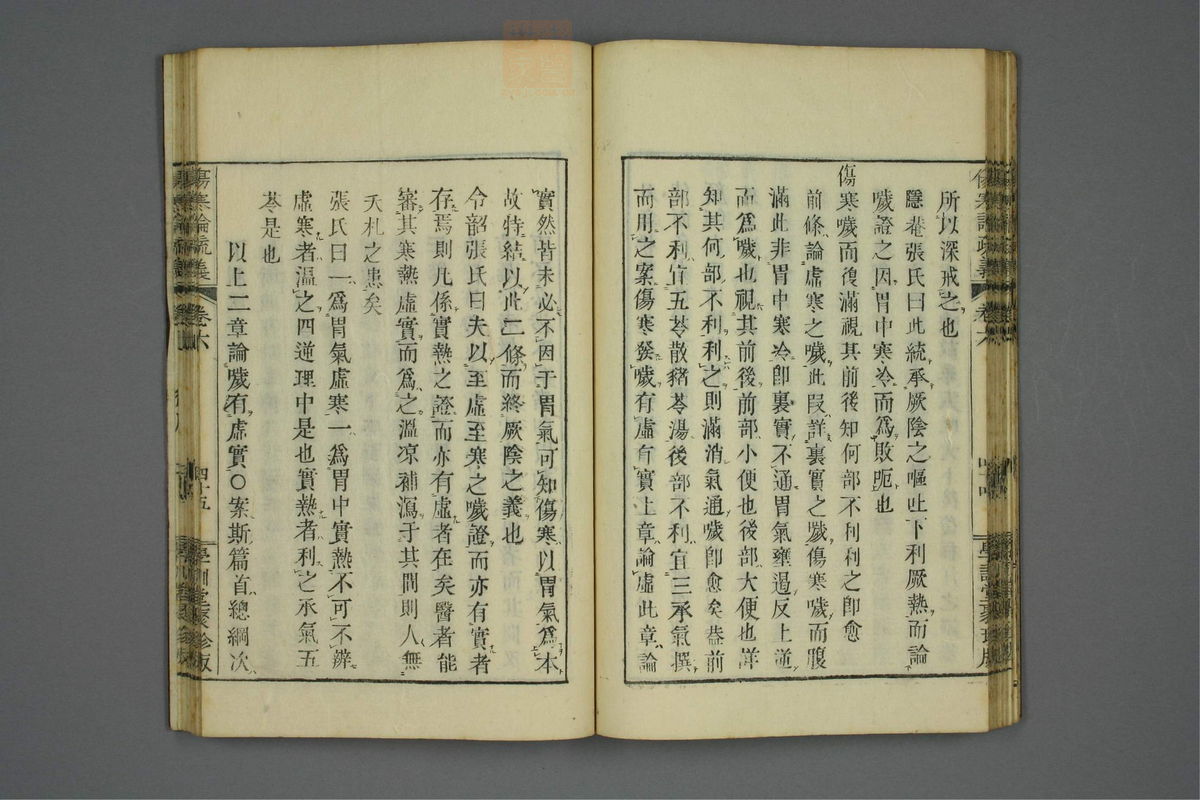 所以深戒之也
隱菴張氏曰此統承厥陰之嘔吐下利厥熱而論
噦證之因胃中寒冷而爲敗呃也
傷寒噦而復滿視其前後知何部不利利之卽愈
前條論虛寒之噦此段詳裏實之噦傷寒噦而腹
滿此非胃中寒冷卽裏實不通胃氣壅遏反上逆
而爲噦也視其前後前部小便也後部大便也詳
知其何部不利利之則滿消氣通噦卽愈矣葢前
部不利宜五苓散豬苓湯後部不利宜三承氣撰
而用之案傷寒發噦有虛有實上章論虛此章論
實然皆未必不因于胃氣可知傷寒以胃氣爲本
故特結以此二條而終厥陰之義也
令韶張氏曰夫以至虛至寒之噦證而亦有實者
存焉則凡係實熱之證而亦有虛者在矣醫者能
審其寒熱虛實而爲之溫凉補瀉于其間則人無
夭札之患矣
張氏曰一爲胃氣虛寒一爲胃中實熱不可不辨
虛寒者溫之四逆理中是也實熱者利之承氣五
苓是也
以上二章論噦有虛實〇案斯篇首總綱次
傷寒論疏義
卷六
四十五
學訓堂聚珍版